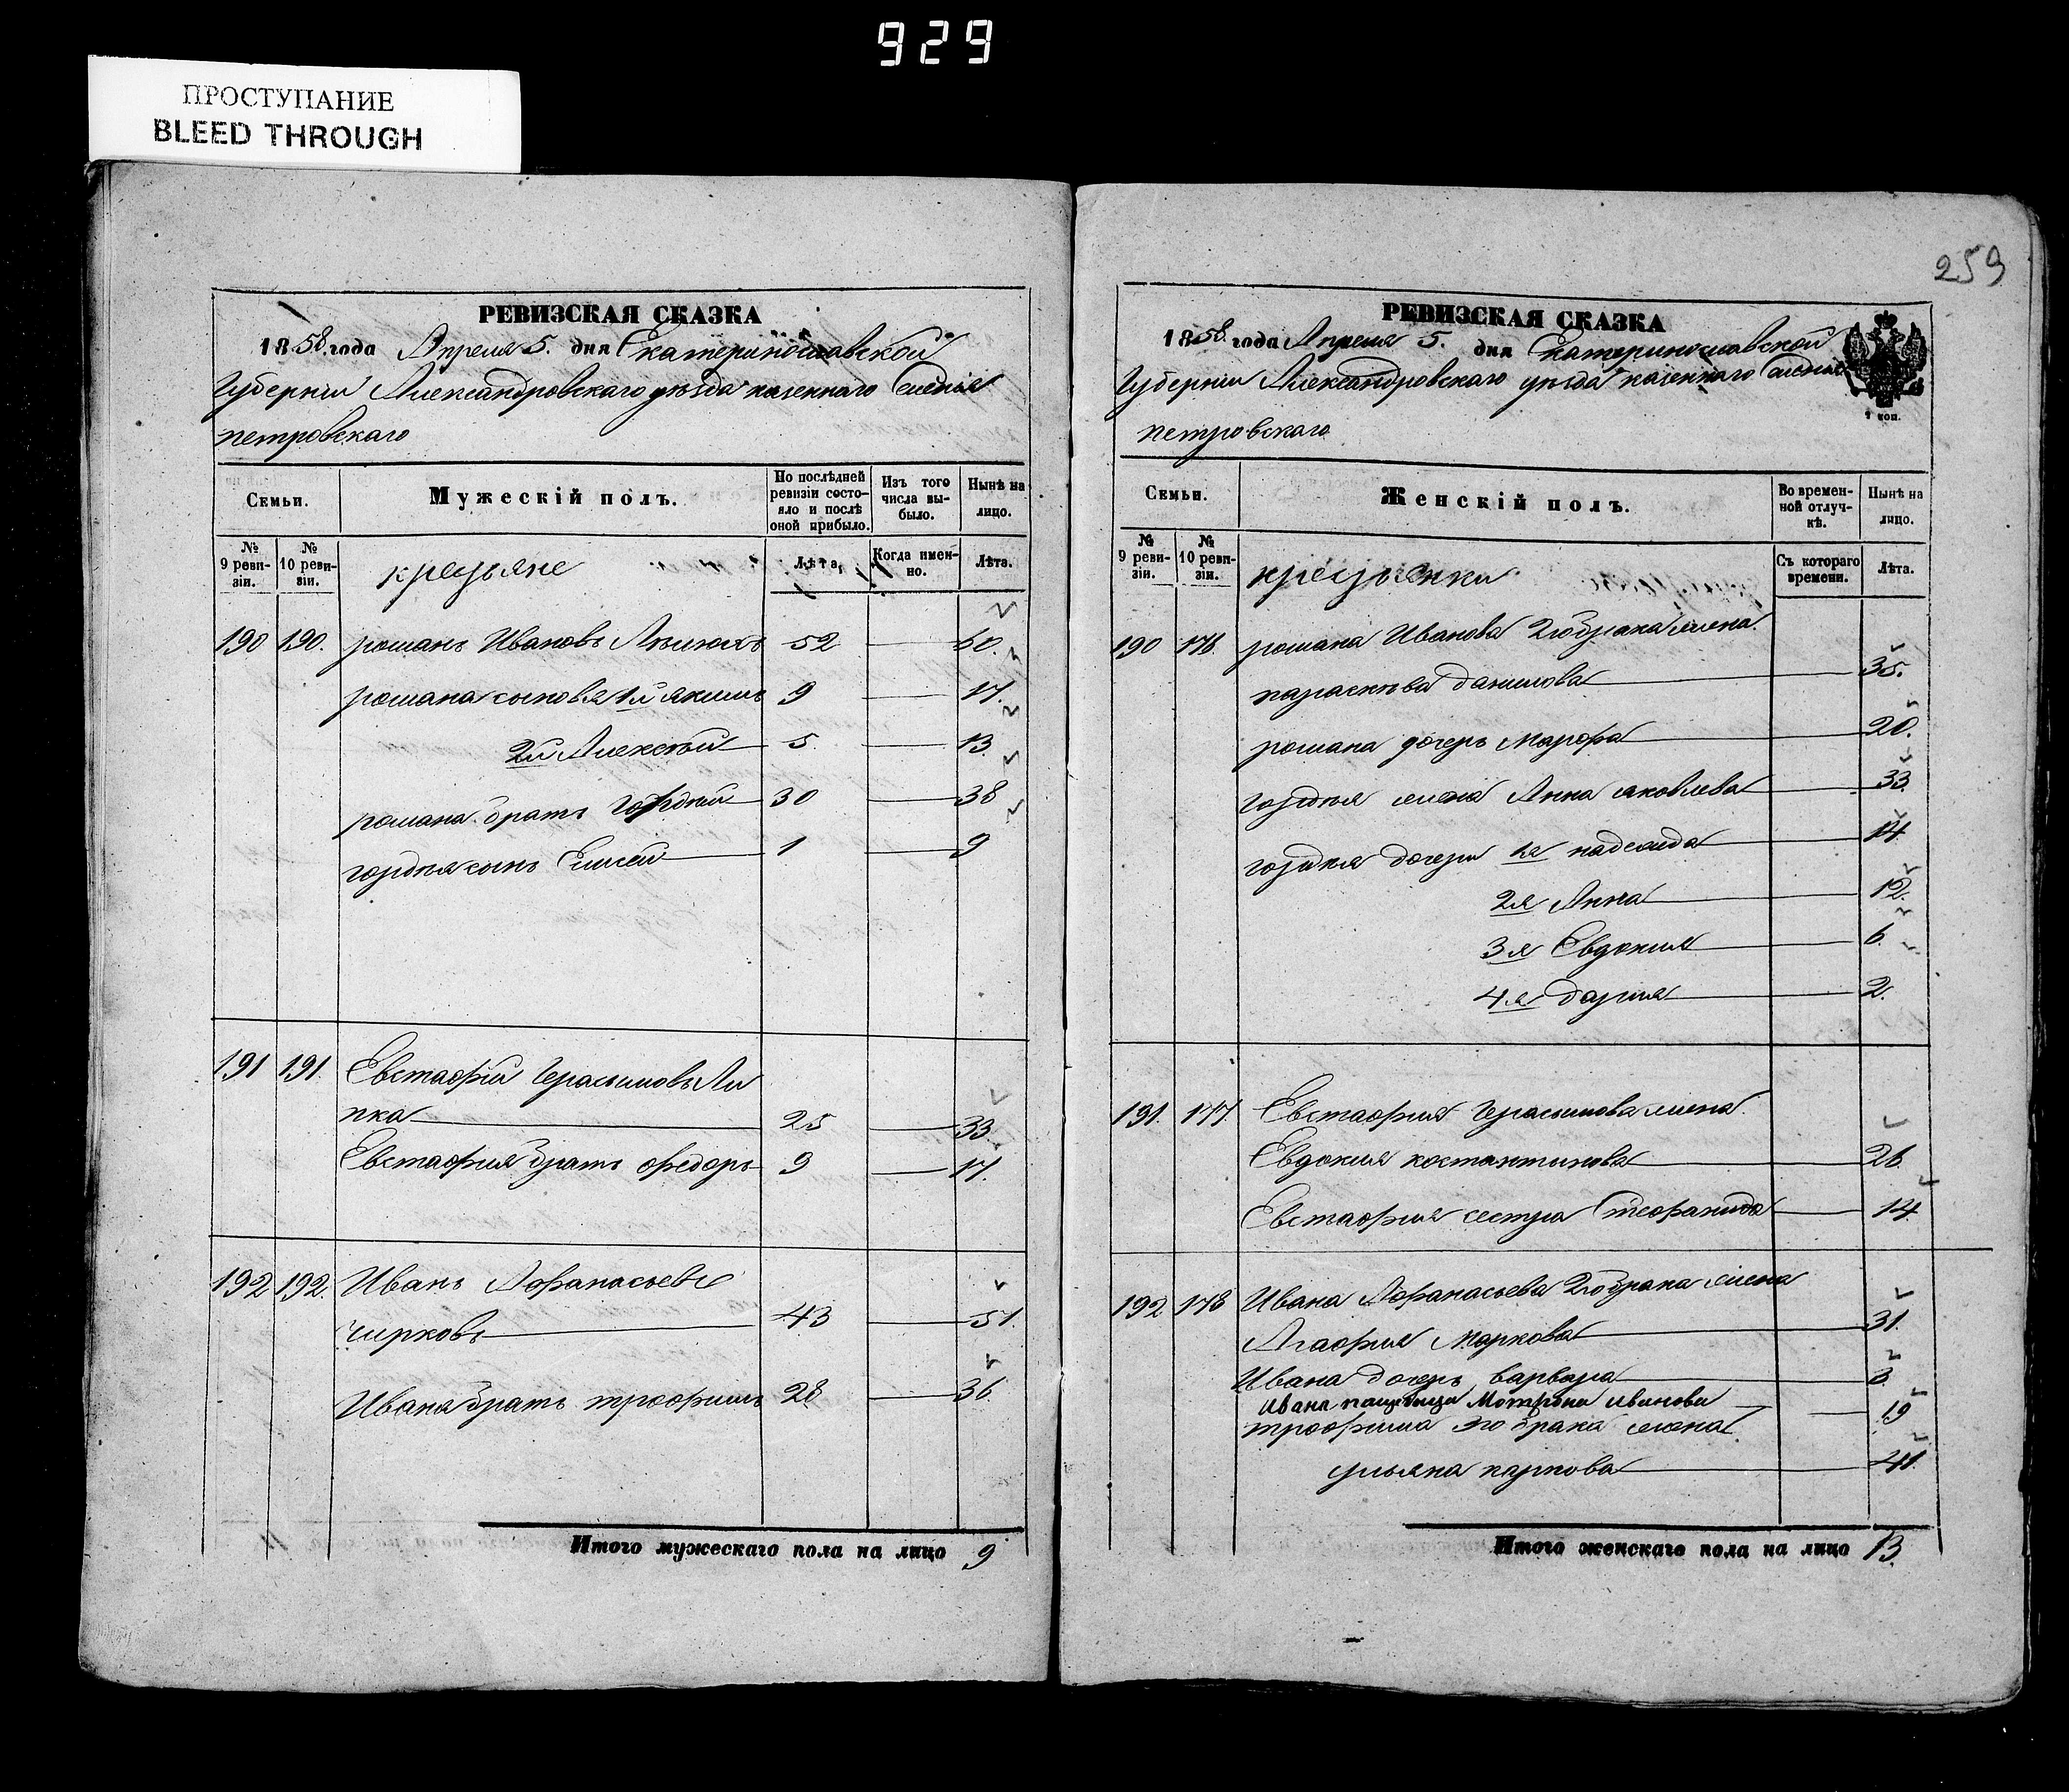 929
ПРОСТУПАНИЕ
BLEED THROUGH
РЕВИЗСКАЯ СКАЗКА
1858. года Апреля 5. дня Екатеринославской
Губернии Александровскаго уѣзда казеннаго селенія
петровскаго
Семьи.
Мужескій полъ.
По послѣдней ревизіи состояло и послѣ оной прибыло.
Изъ того числа выбыло.
Нынѣ на лицо.
№ 9 ревизіи.
№ 10 ревизіи.
крестьяне
Лѣта.
Когда именно.
Лѣта.
190 190. романъ Ивановъ 52 60.
романа сыновья 1й якимъ 9 17.
2й Алексѣй 5. 13.
романа братъ Гордѣй 30 38
гордѣя сынъ Елисей 1 9
191 191. Евстафій Герасимовъ Ли
пка 25 33.
Евстафия братъ федоръ 9 17.
192 192. Иванъ Афанасьевъ
чирковъ 43 51.
Ивана братъ трофимъ 28 36.
Итого мужескаго пола на лицо 9
259
РЕВИЗСКАЯ СКАЗКА
1858. года Апреля 5. дня Екатеринославской
Губернии Александровскаго уѣзда казеннаго селения
петровскаго
1 коп.
Семьи.
Женскій полъ.
Во временной отлучкѣ.
Нынѣ на лицо.
№ 9 ревизіи.
№ 10 ревизіи.
крестьянки
Съ котораго времени.
Лѣта.
190 176. романа Иванова 2го брака жена
параскѣва данилова 35.
романа дочерь Марфа 20.
гордѣя жена Анна яковлева 33.
гордѣя дочери 1я надежда 14
2я Анна 12.
3я Евдокия 6.
4я дария 2.
191. 177. Евстафия Герасимова жена
Евдокия костантинова 26.
Евстафия сестра 14.
192 178 Ивана Афанасьева 2го брака жена
Агафия Маркова 31.
Ивана дочерь варвара 3.
Ивана падчерица Мотрона Иванова 19
трофима 3го брака жена
ульяна карпова 41.
Итого женскаго пола на лицо 13.